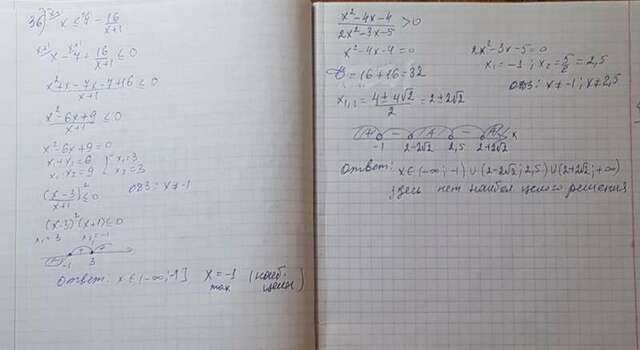 36) x ≤ 4 - 16/(x+1)
x - 4 + 16/(x+1) ≤ 0
(x²+x-4x-4+16)/(x+1) ≤ 0
(x²-6x+9)/(x+1) ≤ 0
x²-6x+9=0
x₁+x₂=6 x₁=3
x₁·x₂=9 x₂=3
(x-3)²/(x+1) ≤ 0 ОДЗ: x≠-1
(x-3)²(x+1) ≤ 0
x₁=3 x₂=-1
-1 3
Ответ: x∈(-∞;-1] x=-1 (наиб.
max целы)
(x²-4x-4)/(2x²-3x-5) > 0
x²-4x-4=0 2x²-3x-5=0
D=16+16=32 x₁=-1; x₂=5/2=2,5
ОДЗ: x≠-1; x≠2,5
x₁,₂=(4±4√2)/2=2±2√2
-1 2-2√2 2,5 2+2√2 x
Ответ: x∈(-∞;-1)∪(2-2√2;2,5)∪(2+2√2;+∞)
здесь нет наибол целого решения